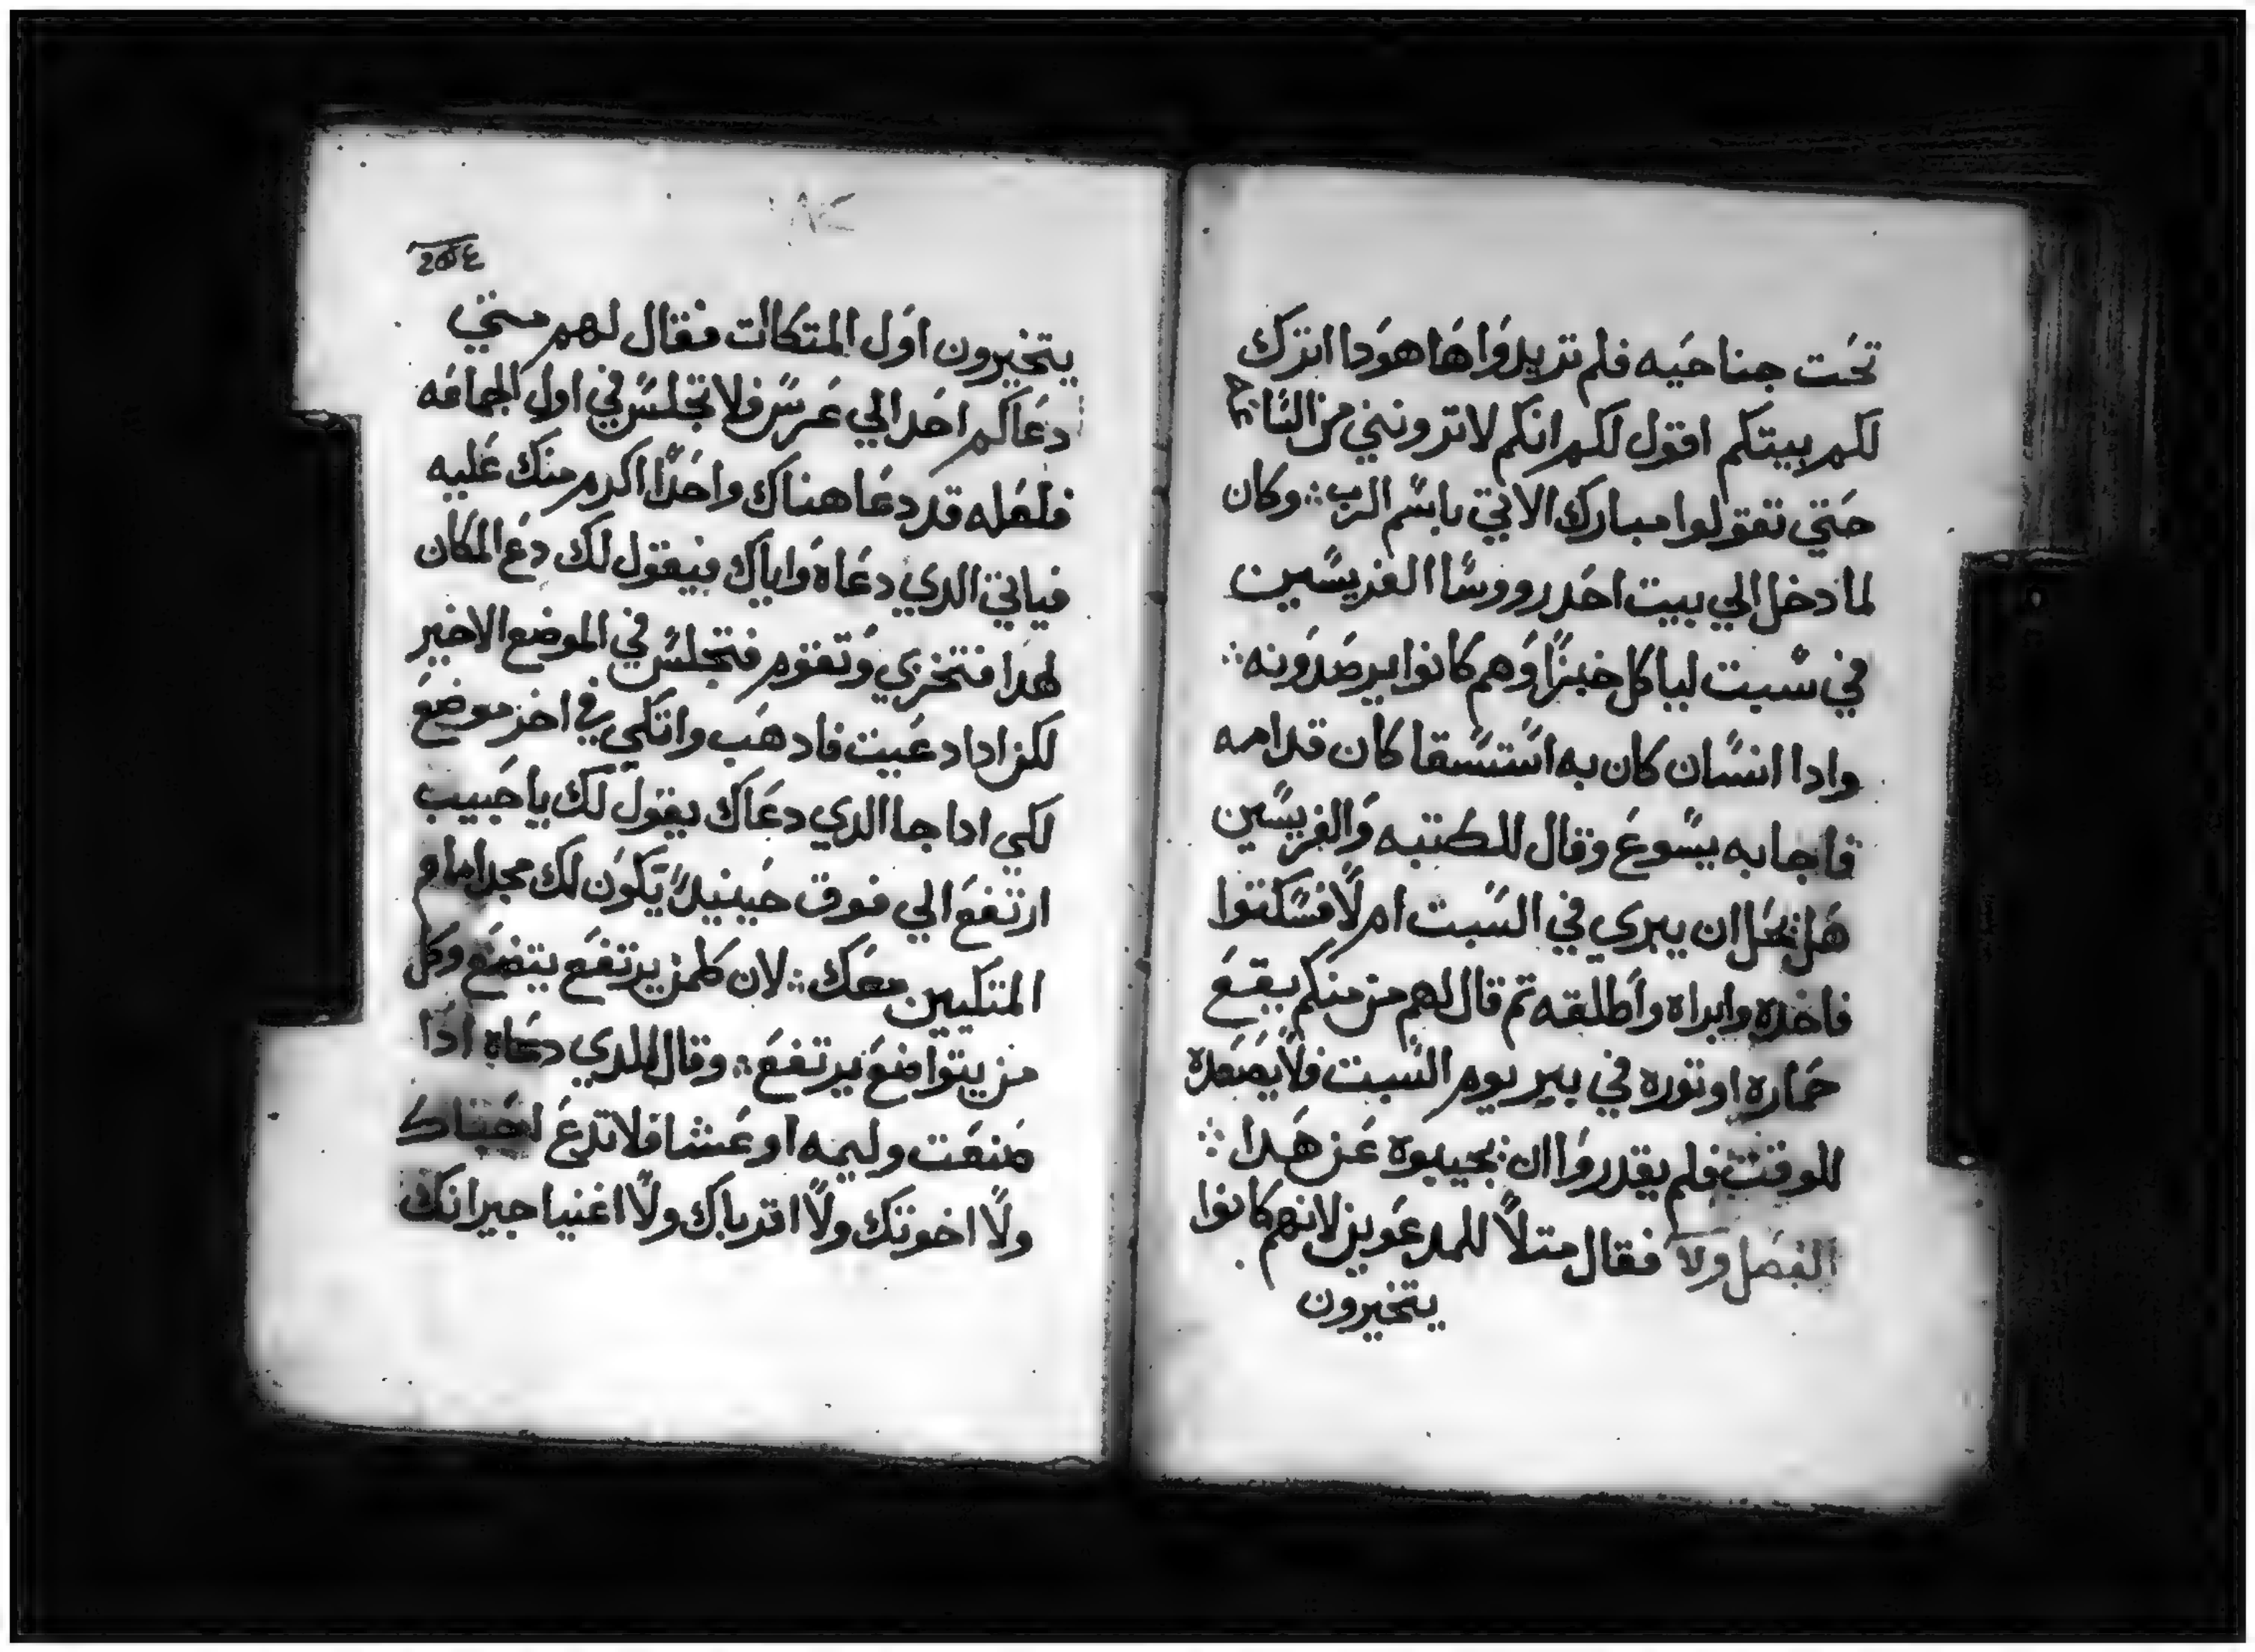 تحت جناحيه فلم تريدوا ها هودا اترك
لكم بيتكم اقول لكم انكم لا ترونني من
حتي تقولوا مبارك الاتي باسم الرب ⁘ وكان
لما دخل الي بيت احد رووسا الفريسين
في سبت لياكل خبزا وهم كانوا يرصدونه ⁘
وادا انسان كان به استسقا كان قدامه
فاجابه يسوع وقال للكتبه والفريسين
هل يحل ان يبري في السبت ام لا فسكتوا
فاخده وابراه واطلقه تم قال لهم من منكم يقع
حماره او توره في بير يوم السبت فلا يصعده
للوقت فلم يقدروا ان يجيبوه عن هدا ⁘
الفصل ولا فقال متلا للمدعوين لانهم كانوا
يتخيرون
يتخيرون اول المتكات فقال لهم متي
دعاكم احد الي عرس فلا تجلس في اول الجماعه
فلعله قد دعا هناك واحدا اكرم منك عليه
فياتي الدي دعاه واياك فيقول لك دع المكان
لهدا فتخزي وتقوم فتجلس في الموضع الاخير
لكن ادا دعيت فادهب واتكي في اخر موضع
لكي ادا جا الدي دعاك يقول لك يا حبيب
ارتفع الي فوق حينيد يكون لك مجد امام
المتكيين معك ⁘ لان كلمن يرتفع يتضع وكل
من يتواضع يرتفع ⁘ وقال للدي دعاه ادا
صنعت وليمه او عشا فلا تدع احباك
ولا اخوتك ولا اقرباك ولا اغنيا جيرانك